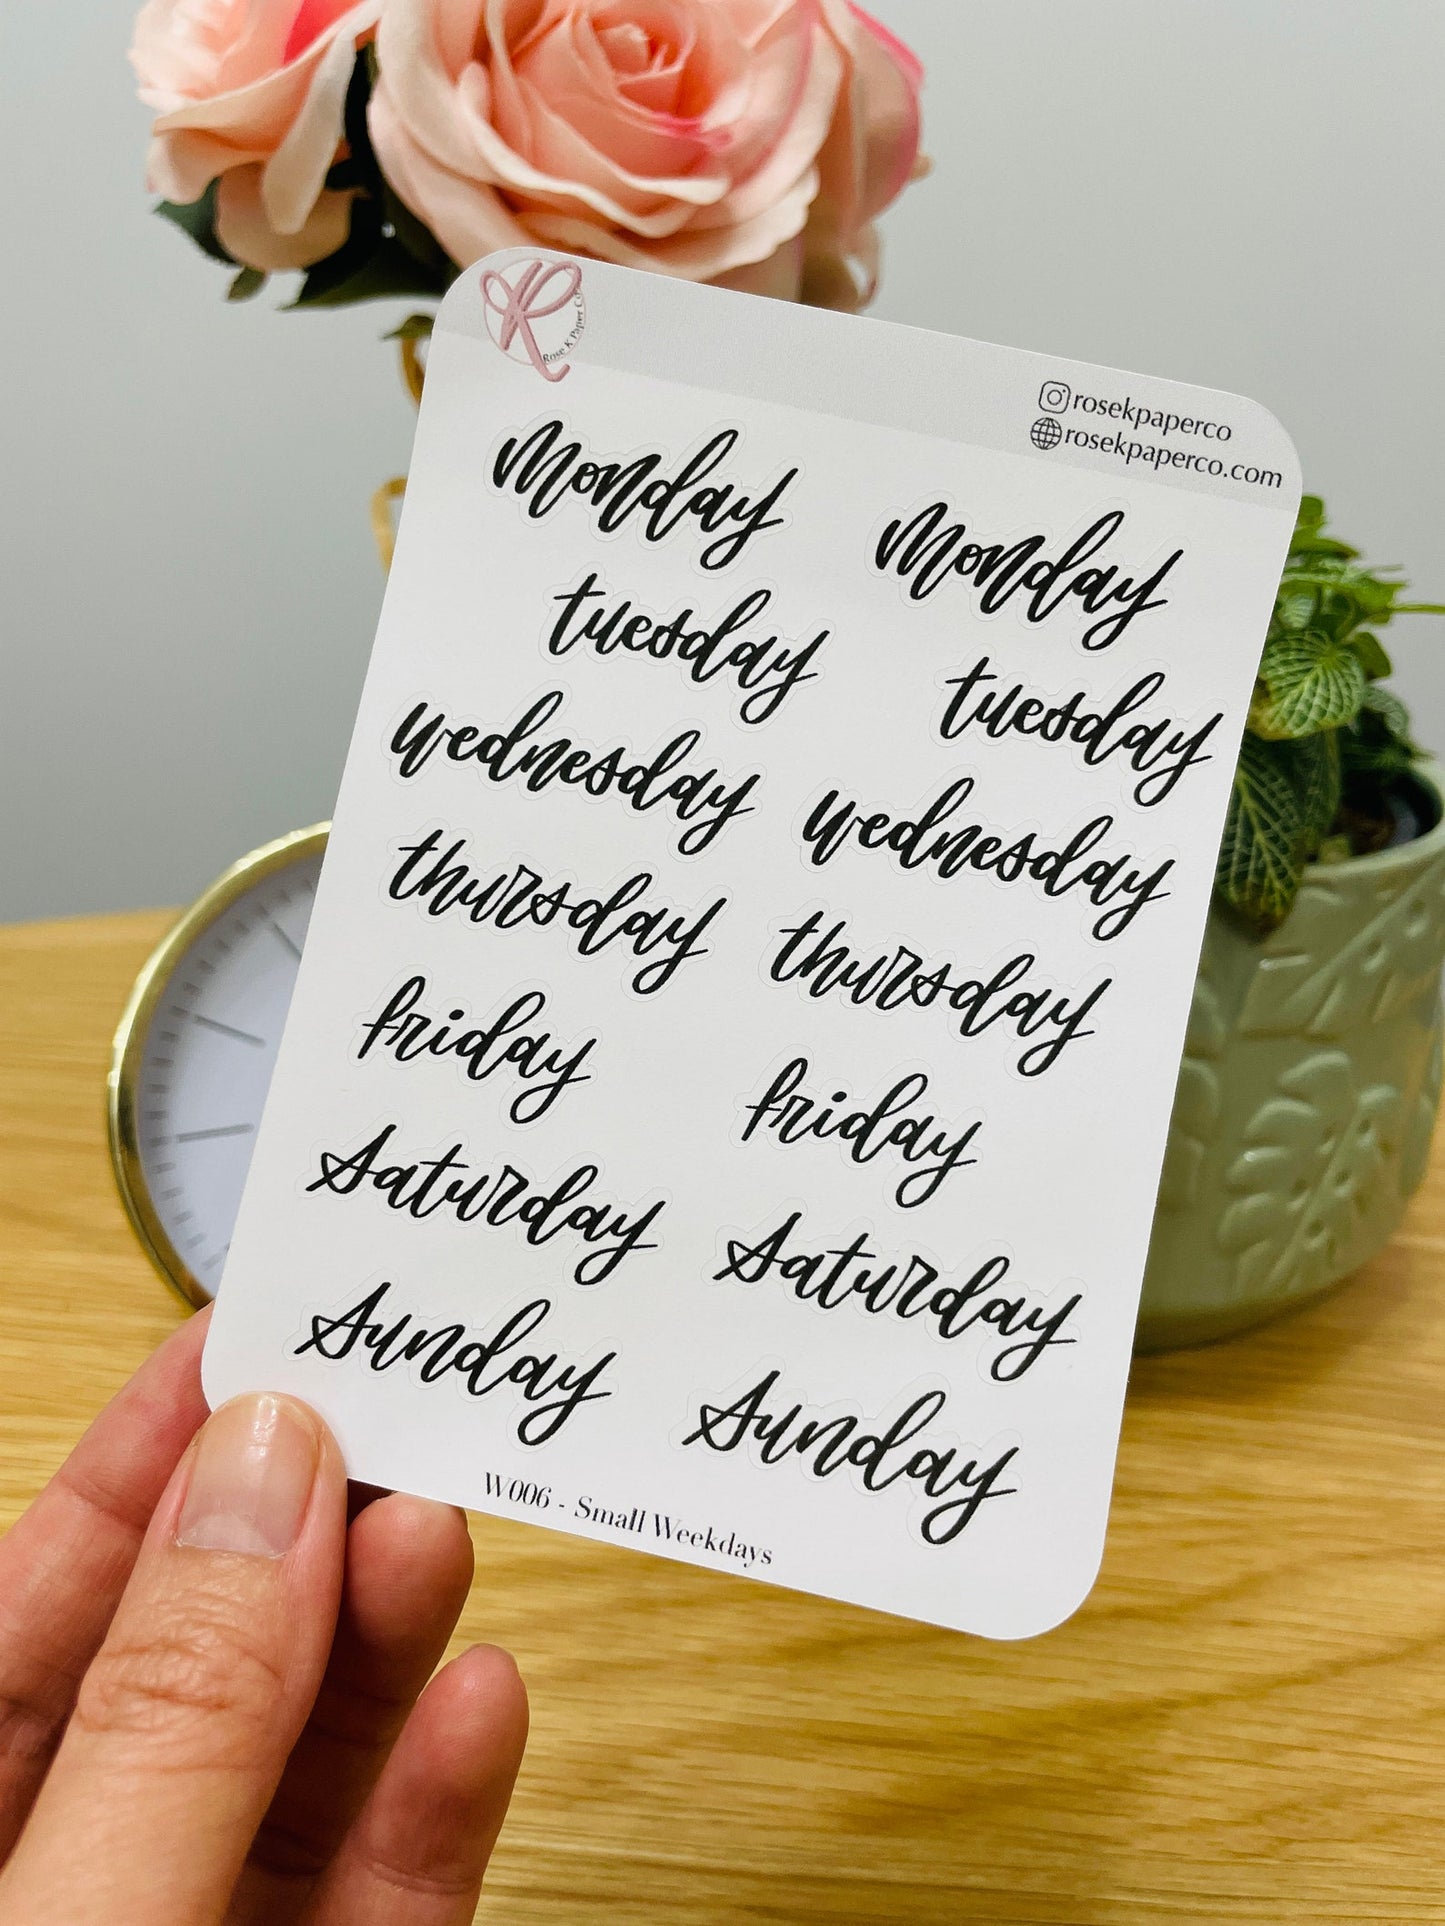 Rose K Paper Co.
rosekpaperco
rosekpaperco.com
monday monday
tuesday tuesday
wednesday wednesday
thursday thursday
friday friday
saturday saturday
sunday sunday
W006 - Small Weekdays